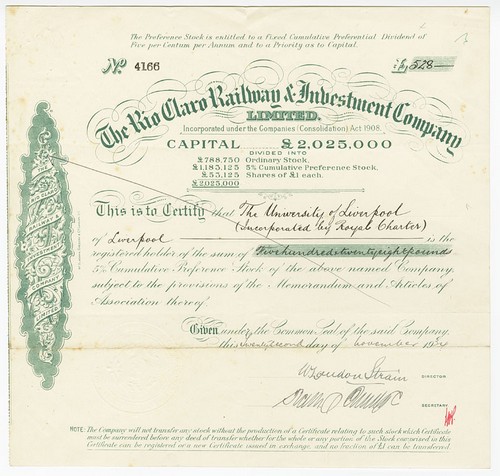 The Preference Stock is entitled to a Fixed Cumulative Preferential Dividend of
Five per Centum per Annum and to a Priority as to Capital.
No 4166
£528
The Rio Claro Railway & Investment Company
LIMITED.
Incorporated under the Companies (Consolidation) Act 1908.
CAPITAL £2,025,000
DIVIDED INTO
£788,750 Ordinary Stock.
£1,183,125 5% Cumulative Preference Stock.
£53,125 Shares of £1 each.
£2,025,000
This is to Certify that The University of Liverpool
(Incorporated by Royal Charter)
of Liverpool is the
registered holder of the sum of Five hundred & twenty eight pounds
5% Cumulative Preference Stock of the above named Company,
subject to the provisions of the Memorandum and Articles of
Association thereof
Given under the Common Seal of the said Company,
this twenty second day of November 193
DIRECTOR
SECRETARY
NOTE: The Company will not transfer any stock without the production of a Certificate relating to such stock which Certificate
must be surrendered before any deed of transfer whether for the whole or any portion of the Stock comprised in this
Certificate can be registered or a new Certificate issued in exchange, and no fraction of £1 can be transferred.